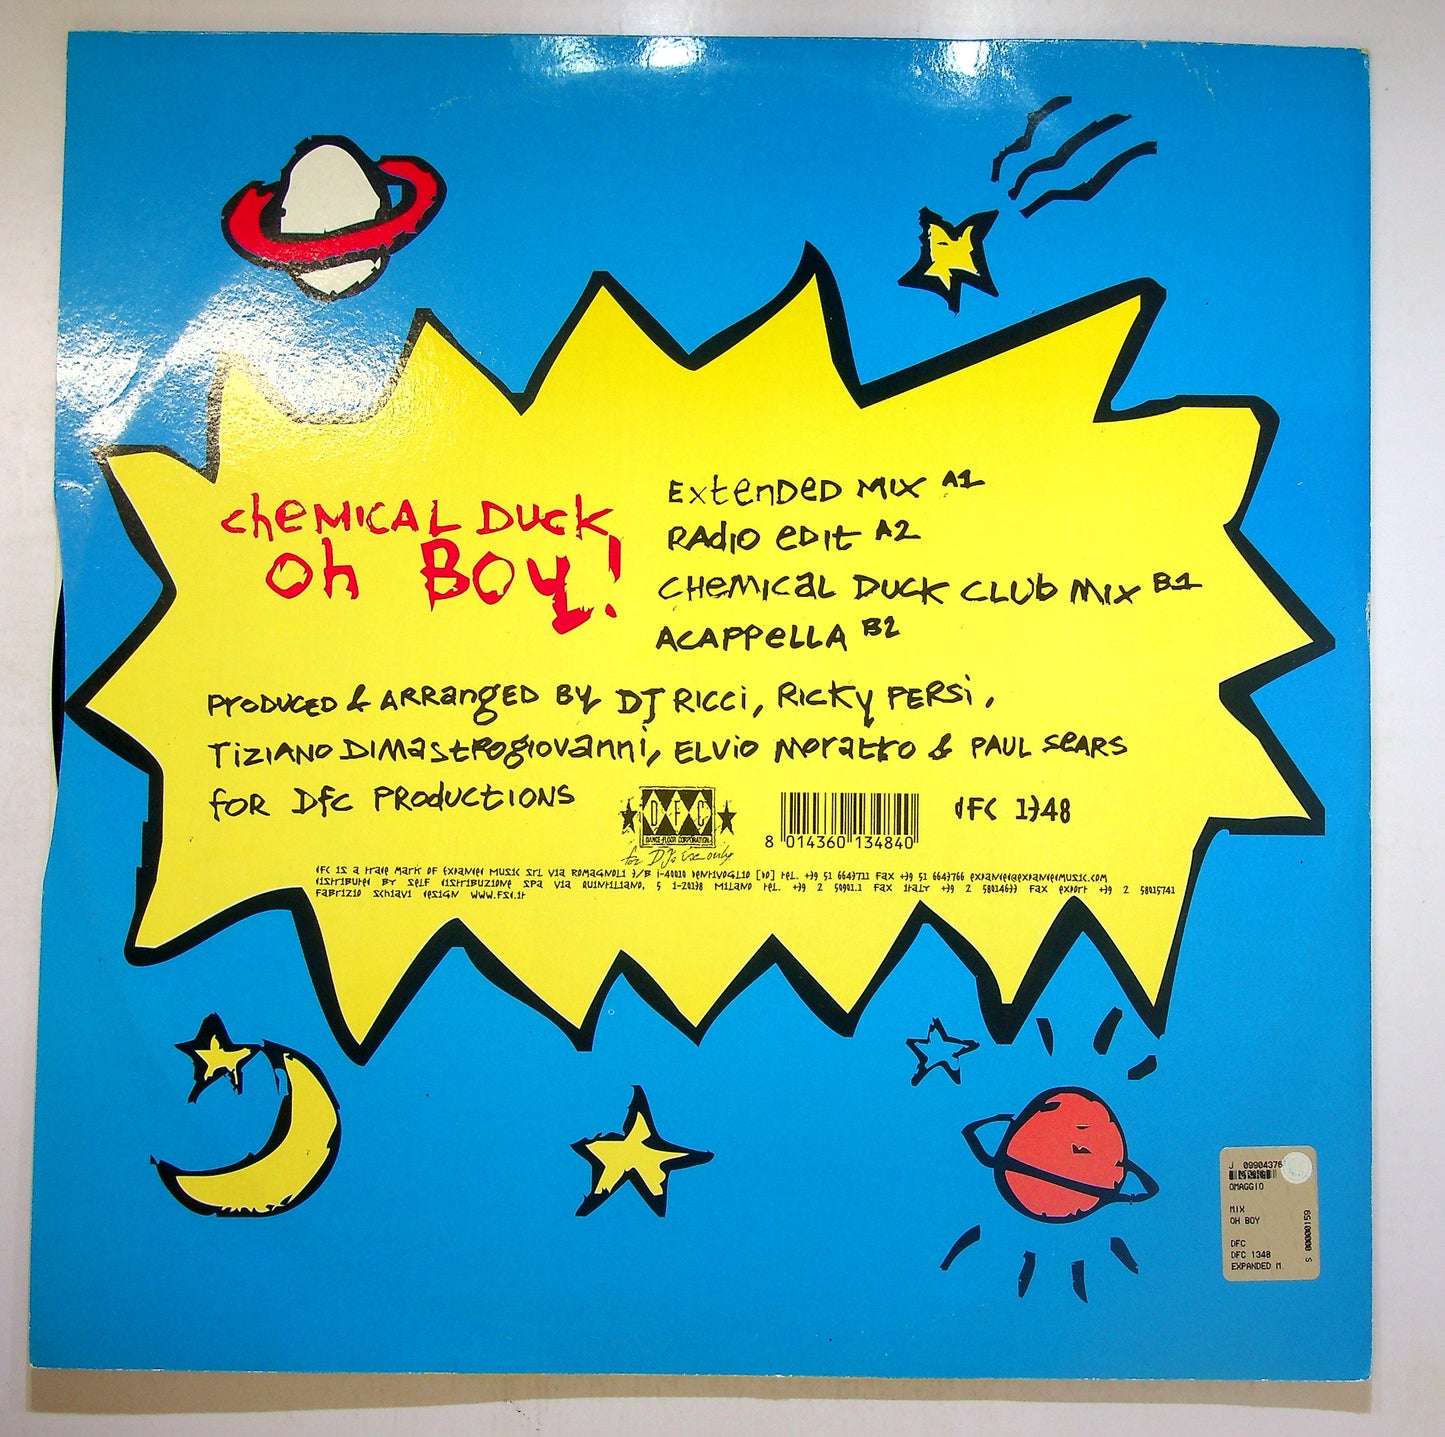 chemical Duck
oh Boy!
Extended Mix A1
Radio edit A2
Chemical Duck Club Mix B1
Acappella B2
Produced & Arranged By DJ Ricci, Ricky Persi,
Tiziano Dimastrogiovanni, Elvio Moratto & Paul Sears
for Dfc Productions
DFC
DANCE FLOOR CORPORATION
for DJs Use only
8 014360 134840
dFC 1348
dFC is a trade mark of Expanded Music Srl Via Romagnoli 3/B I-40010 Bentivoglio [bo] tel. +39 51 6643711 Fax +39 51 6643766 expanded@expandedmusic.com
distributed by Self distribuzione SpA Via Quintiliano, 5 I-20138 Milano tel. +39 2 50901.1 Fax Italy +39 2 58014633 Fax Export +39 2 58015741
Fabrizio Schiavi design www.fsd.it
J 09904376
OMAGGIO
MIX
OH BOY
DFC
DFC 1348
EXPANDED M.
S 00000159